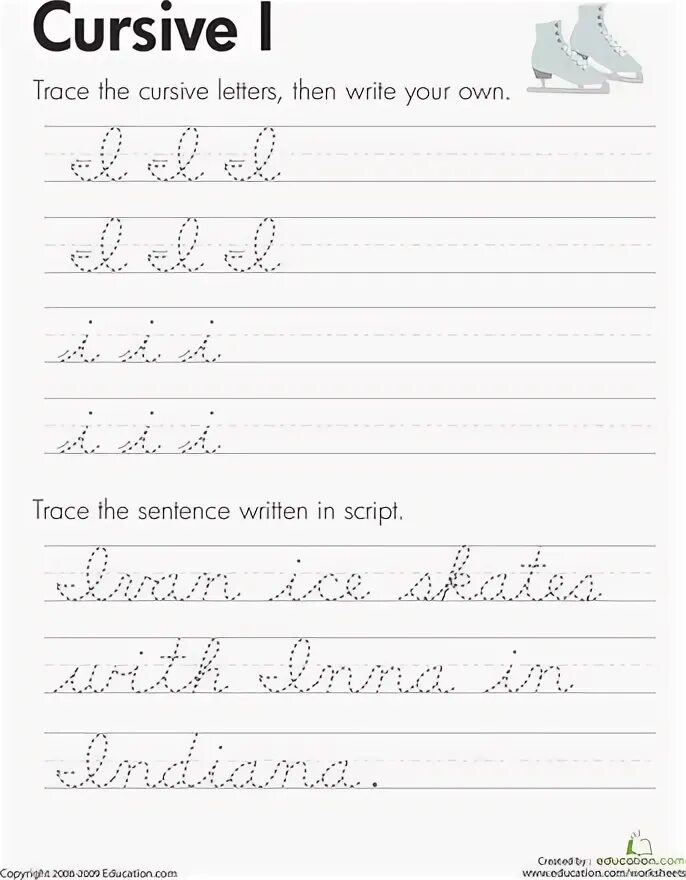 Cursive I
Trace the cursive letters, then write your own.
I I I
I I I
i i i
i i i
Trace the sentence written in script.
Ivan ice skates
with Inna in
Indiana.
Created by : education.com
Copyright 2008-2009 Education.com
www.education.com/worksheets